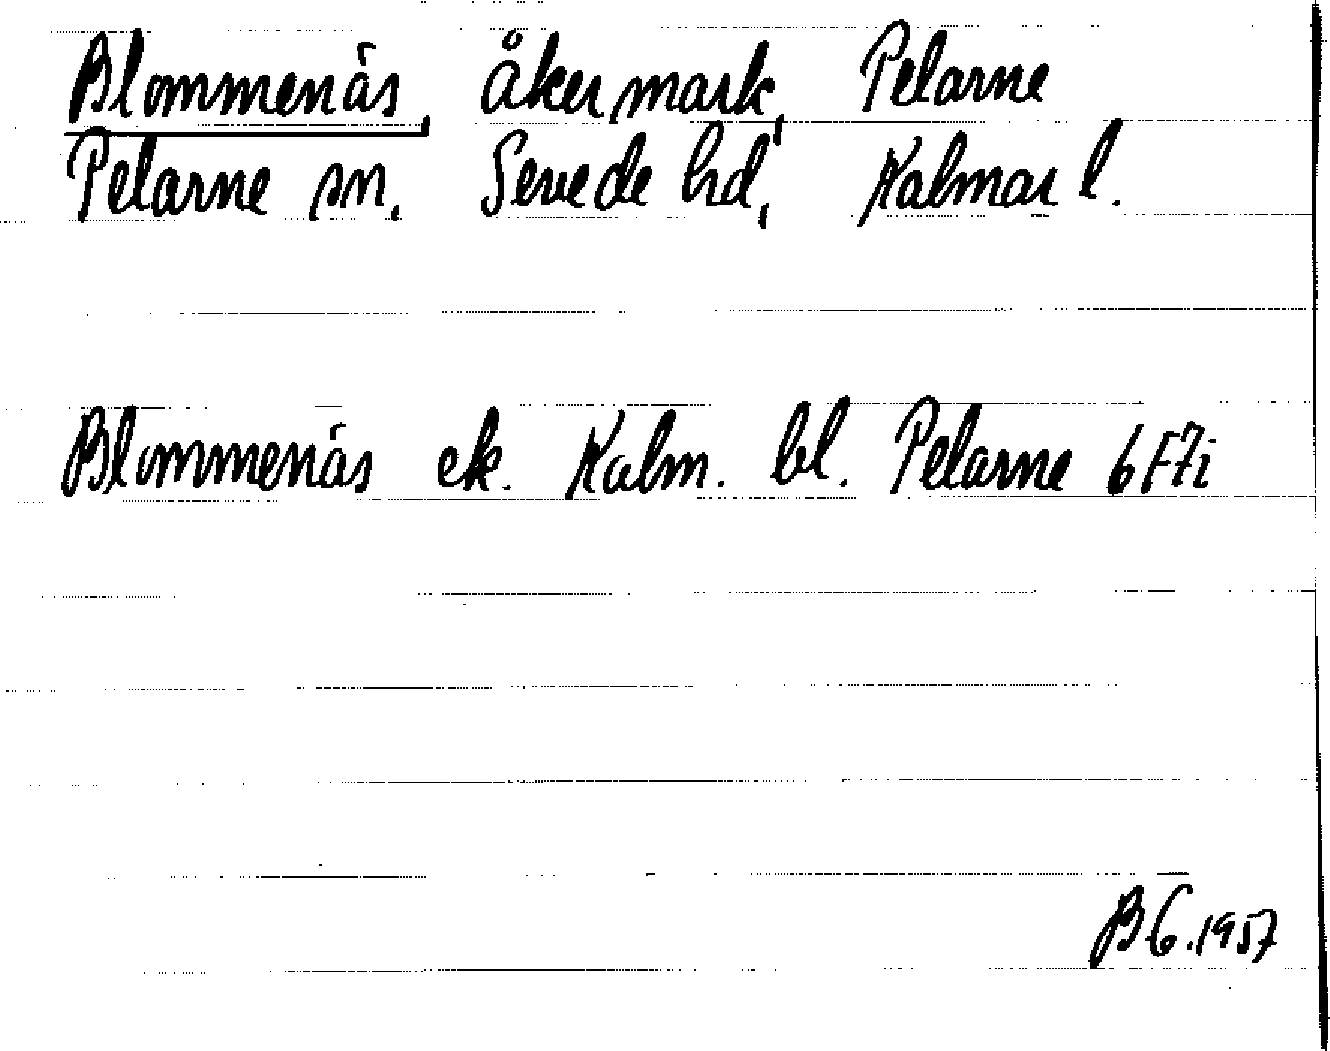 Blommenäs, åkermark, Pelarne
Pelarne sn, Sevede hd, Kalmar l.
Blommenäs ek. Kalm. bl. Pelarne 6F7i
BG.1957